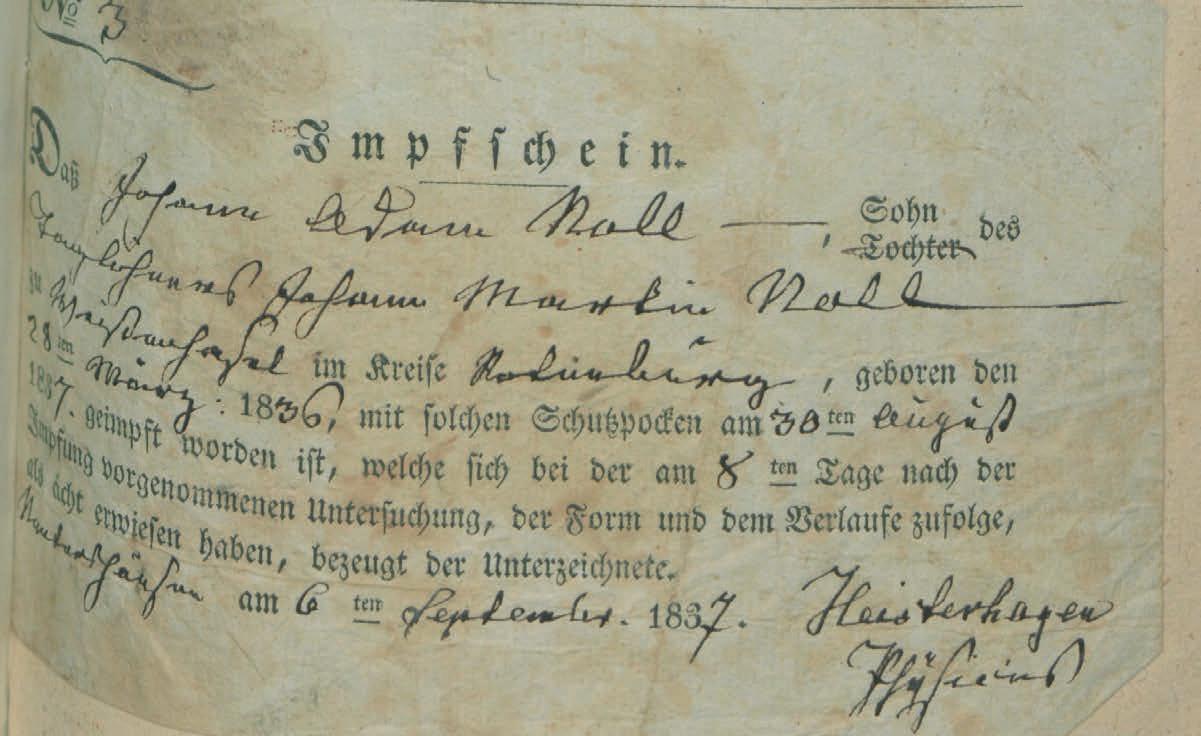 No 3
Impfschein.
Daß Johann Adam Noll —, Sohn des
Tochter
Taglöhners Johann Martin Noll
zu Weißenhasel im Kreise Rotenburg, geboren den
28ten März 1836, mit solchen Schutzpocken am 30ten August
1837. geimpft worden ist, welche sich bei der am 8ten Tage nach der
Impfung vorgenommenen Untersuchung, der Form und dem Verlaufe zufolge,
als ächt erwiesen haben, bezeugt der Unterzeichnete.
Nentershausen am 6ten September. 1837. Heisterhagen
Physicus